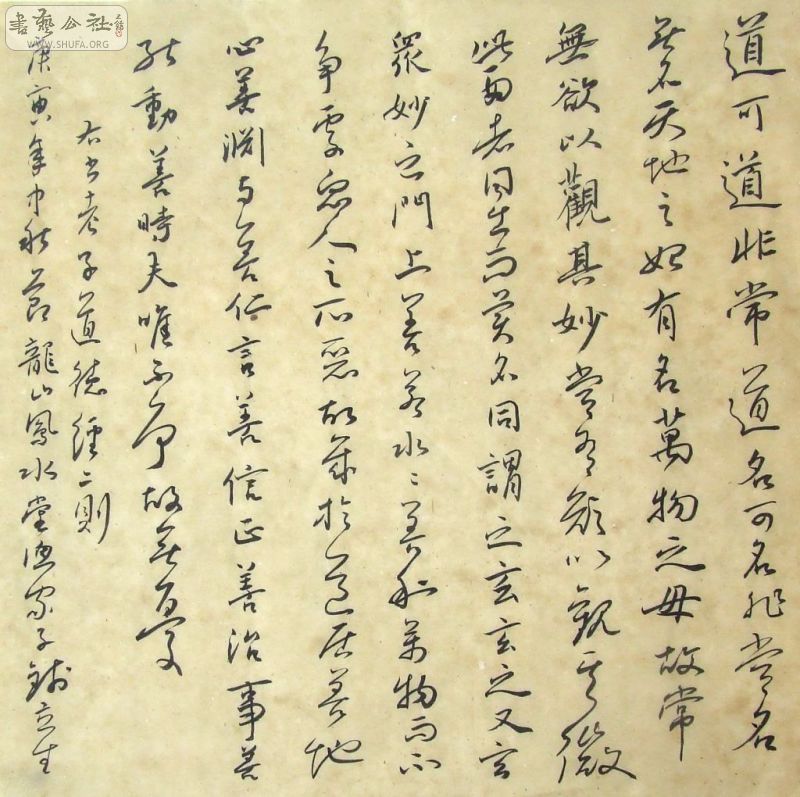 書藝公社
WWW.SHUFA.ORG
道可道非常道名可名非常名
無名天地之始有名萬物之母故常
無欲以觀其妙常有欲以觀其徼
此兩者同出而異名同謂之玄玄之又玄
眾妙之門上善若水〻善利萬物而不
争處眾人之所惡故幾於道居善地
心善渊与善仁言善信正善治事善
能動善時夫唯不争故無憂
右書老子道德經二則
庚寅年中秋節龍山鳳水堂家子立生